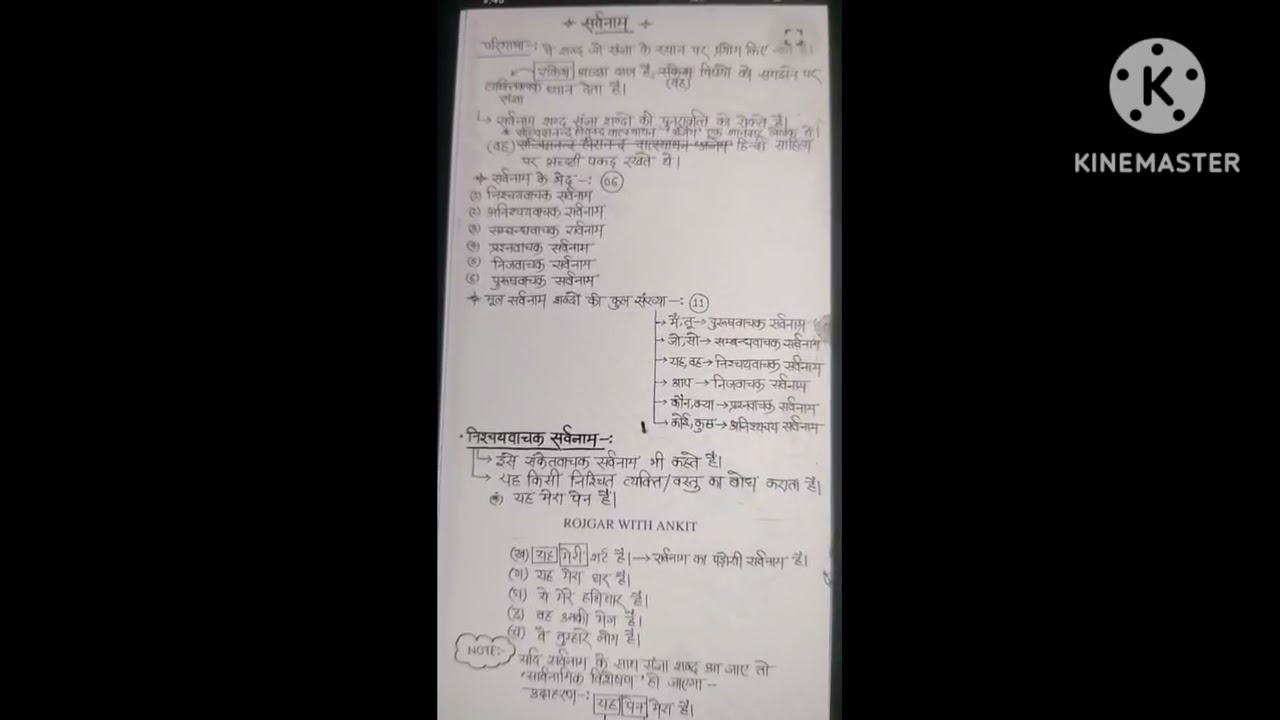 * सर्वनाम *
परिभाषा-: वे शब्द जो संज्ञा के स्थान पर प्रयोग किए जाते हैं।
राकेश अच्छा छात्र है, राकेश विषयों को समझने पर
(वह)
व्यक्तिवाचक ध्यान देता है।
संज्ञा
↳ सर्वनाम शब्द संज्ञा शब्दों की पुनरावृत्ति को रोकते है।
* सच्चिदानन्द हीरानन्द वात्स्यायन अज्ञेय एक शानदार लेखक थे।
(वह) सच्चिदानन्द हीरानन्द वात्स्यायन अज्ञेय हिन्दी साहित्य
पर अच्छी पकड़ रखते थे।
* सर्वनाम के भेद -: 06
(1) निश्चयवाचक सर्वनाम
(2) अनिश्चयवाचक सर्वनाम
(3) सम्बन्धवाचक सर्वनाम
(4) प्रश्नवाचक सर्वनाम
(5) निजवाचक सर्वनाम
(6) पुरूषवाचक सर्वनाम
* मूल सर्वनाम शब्दों की कुल संख्या -: 11
→ मैं, तू → पुरूषवाचक सर्वनाम
→ जो, सो → सम्बन्धवाचक सर्वनाम
→ यह, वह → निश्चयवाचक सर्वनाम
→ आप → निजवाचक सर्वनाम
→ कौन, क्या → प्रश्नवाचक सर्वनाम
→ कोई, कुछ → अनिश्चयचय सर्वनाम
• निश्चयवाचक सर्वनाम -:
→ इसे संकेतवाचक सर्वनाम भी कहते है।
→ यह किसी निश्चित व्यक्ति/वस्तु का बोध कराता है।
(क) यह मेरा पेन है।
ROJGAR WITH ANKIT
(ख) यह मेरी शर्ट है। → सर्वनाम का पड़ोसी सर्वनाम है।
(ग) यह मेरा घर है।
(घ) ये मेरे हथियार है।
(ङ) वह उनकी मेज है।
(च) वे तुम्हारे लोग है।
NOTE:-
यदि सर्वनाम के साथ संज्ञा शब्द आ जाए तो
'सार्वनामिक विशेषण' हो जाएगा -
उदाहरण -: यह पेन मेरा है।
K
KINEMASTER